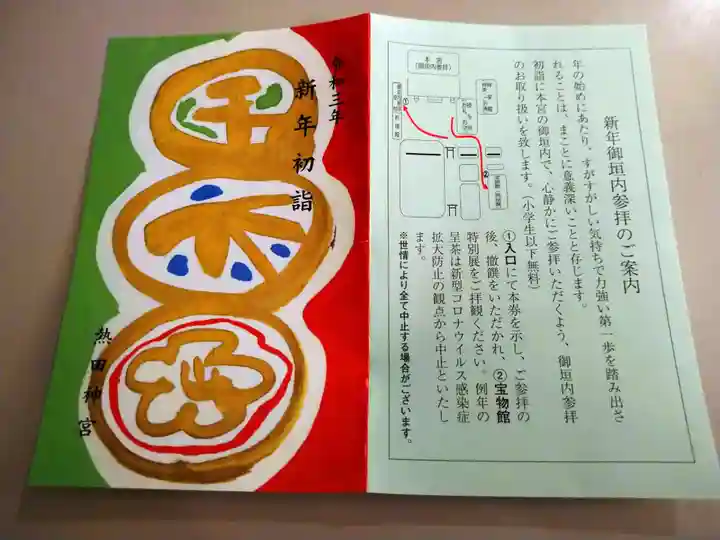 令和三年
新年初詣
熱田神宮
新年御垣内参拝のご案内
年の始めにあたり、すがすがしい気持ちで力強い第一歩を踏み出さ
れることは、まことに意義深いことと存じます。
初詣に本宮の御垣内で、心静かにご参拝いただくよう、御垣内参拝
のお取り扱いを致します。（小学生以下無料）
①入口にて本券を示し、ご参拝の
後、撤饌をいただかれ、②宝物館
特別展をご拝観ください。例年の
呈茶は新型コロナウイルス感染症
拡大防止の観点から中止といたし
ます。
※世情により全て中止する場合がございます。
本宮
（御垣内参拝）
①
②